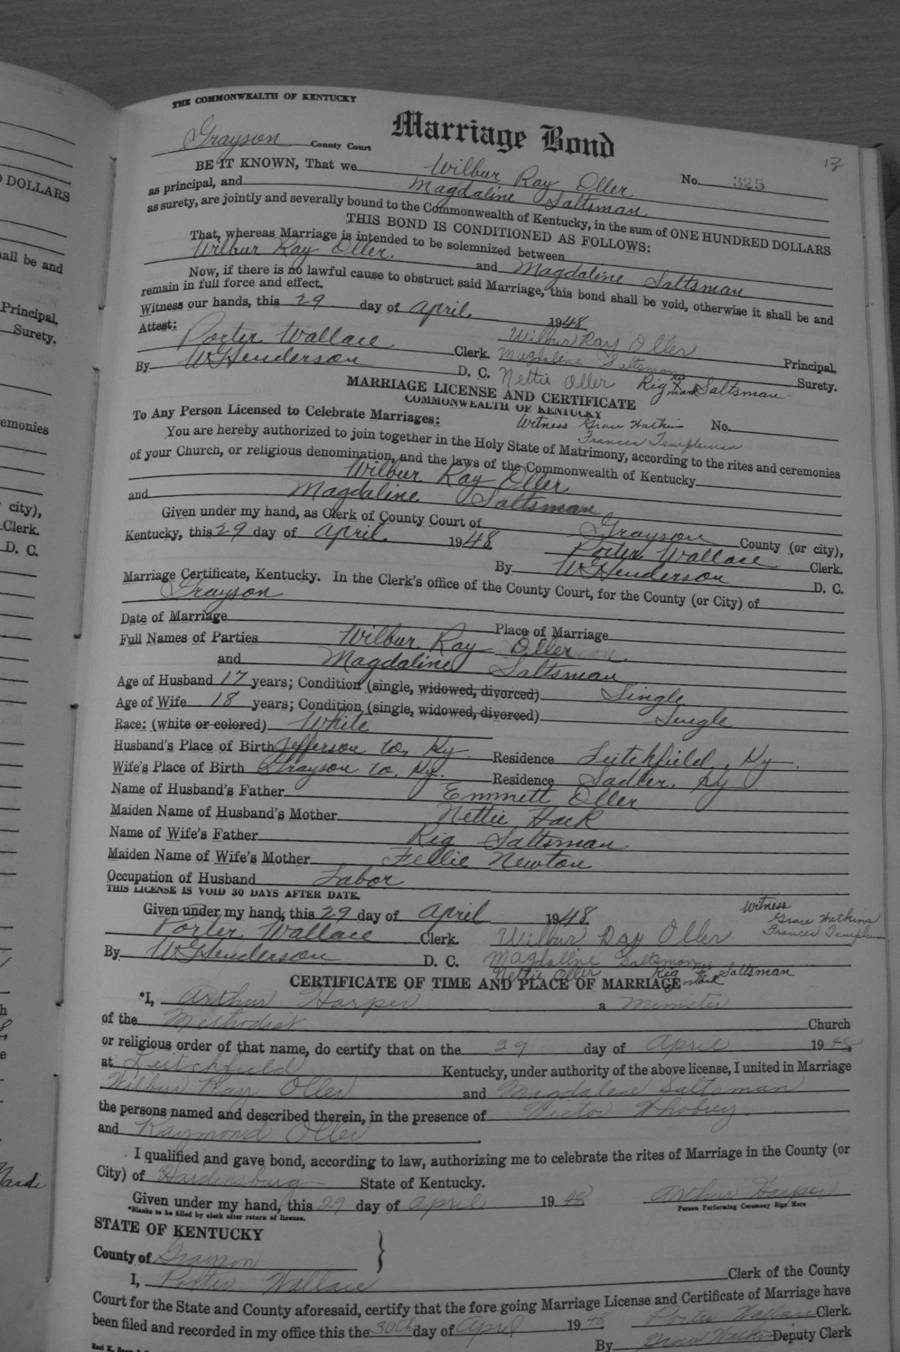 DOLLARS
all be and
Principal,
Surety.
emonies
city),
Clerk.
D. C.
THE COMMONWEALTH OF KENTUCKY
Marriage Bond
13
Grayson County Court
BE IT KNOWN, That we Wilbur Ray Oller No. 325
as principal, and Magdaline Saltsman
as surety, are jointly and severally bound to the Commonwealth of Kentucky, in the sum of ONE HUNDRED DOLLARS
THIS BOND IS CONDITIONED AS FOLLOWS:
That, whereas Marriage is intended to be solemnized between
Wilbur Ray Oller. and Magdaline Saltsman
Now, if there is no lawful cause to obstruct said Marriage, this bond shall be void, otherwise it shall be and
remain in full force and effect.
Witness our hands, this 29 day of April 1948
Attest:
Porter Wallace Clerk. Wilbur Ray Oller Principal,
By W G Henderson D. C. Magdaline Saltsman Surety.
Nettie Oller Rig X Saltsman
mark
MARRIAGE LICENSE AND CERTIFICATE
COMMONWEALTH OF KENTUCKY
To Any Person Licensed to Celebrate Marriages: Witness Grace Watkins No.
Frances Templeman
You are hereby authorized to join together in the Holy State of Matrimony, according to the rites and ceremonies
of your Church, or religious denomination, and the laws of the Commonwealth of Kentucky
Wilbur Ray Oller
and Magdaline Saltsman
Given under my hand, as Clerk of County Court of Grayson County (or city),
Kentucky, this 29 day of April 1948 Porter Wallace Clerk.
By W G Henderson D. C.
Marriage Certificate, Kentucky. In the Clerk's office of the County Court, for the County (or City) of
Grayson
Date of Marriage Place of Marriage
Full Names of Parties Wilbur Ray Oller
and Magdaline Saltsman
Age of Husband 17 years; Condition (single, widowed, divorced) Single
Age of Wife 18 years; Condition (single, widowed, divorced) Single
Race: (white or colored) White
Husband's Place of Birth Jefferson Co, Ky. Residence Leitchfield, Ky.
Wife's Place of Birth Grayson Co. Ky. Residence Sadler, Ky
Name of Husband's Father Emmett Oller
Maiden Name of Husband's Mother Nettie Hack
Name of Wife's Father Rig Saltsman.
Maiden Name of Wife's Mother Fellie Newton
Occupation of Husband Labor
THIS LICENSE IS VOID 30 DAYS AFTER DATE.
Given under my hand, this 29 day of April 1948 Witness
Grace Watkins
Porter Wallace Clerk. Wilbur Ray Oller Frances
By W G Henderson D. C. Magdaline Saltsman
Nettie Oller Rig X Saltsman
mark
CERTIFICATE OF TIME AND PLACE OF MARRIAGE
*I, Arthur Harper a Minister
of the Methodist Church
or religious order of that name, do certify that on the 29 day of April 1948,
at Leitchfield Kentucky, under authority of the above license, I united in Marriage
Wilbur Ray Oller and Magdalene Saltsman
the persons named and described therein, in the presence of Victor
and Raymond Oller
I qualified and gave bond, according to law, authorizing me to celebrate the rites of Marriage in the County (or
City) of Hardinsburg State of Kentucky.
Given under my hand, this 29 day of April 1948 Arthur Harper
*Blanks to be filled by clerk after return of license. Person Performing Ceremony Sign Here
STATE OF KENTUCKY
County of Grayson
I, Porter Wallace Clerk of the County
Court for the State and County aforesaid, certify that the fore going Marriage License and Certificate of Marriage have
been filed and recorded in my office this the 30th day of April 1948 Porter Wallace Clerk.
By Deputy Clerk